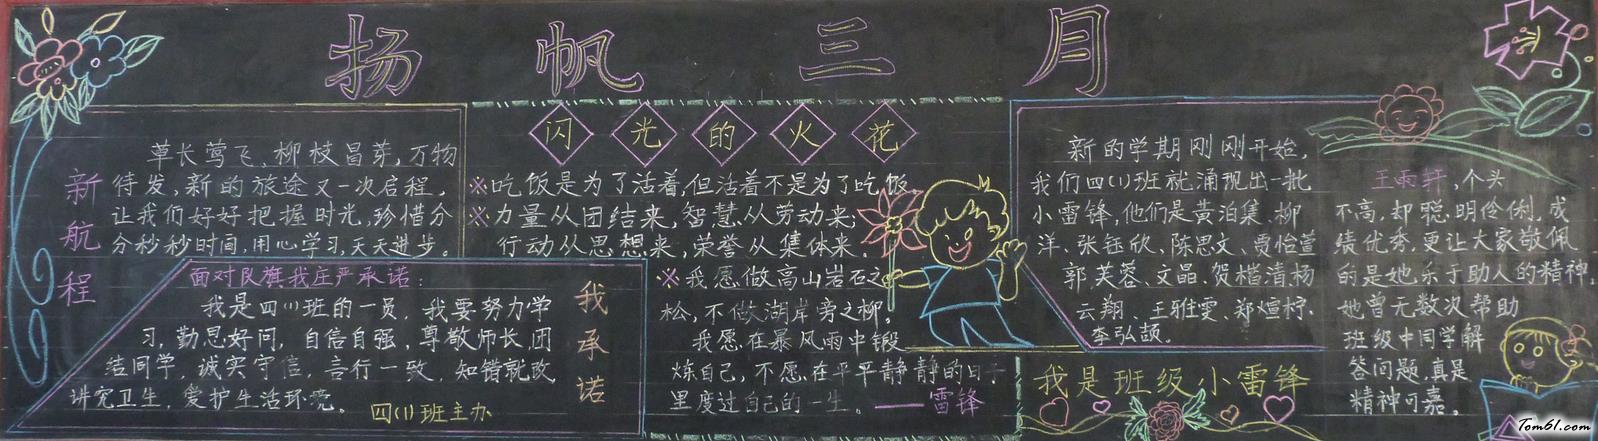 扬帆三月
新航程
草长莺飞、柳枝昌芽，万物
待发，新的旅途又一次启程，
让我们好好把握时光，珍惜分
分秒秒时间，用心学习，天天进步。
面对队旗我庄严承诺：
我是四(1)班的一员，我要努力学
习，勤思好问，自信自强，尊敬师长，团
结同学，诚实守信，言行一致，知错就改，
讲究卫生，爱护生活环境。
四(1)班主办
我承诺
闪光的火花
※吃饭是为了活着，但活着不是为了吃饭。
※力量从团结来，智慧从劳动来；
行动从思想来，荣誉从集体来。
※我愿做高山岩石之
松，不做湖岸旁之柳。
我愿在暴风雨中锻
炼自己，不愿在平平静静的日子
里度过自己的一生。——雷锋
新的学期刚刚开始，
我们四(1)班就涌现出一批
小雷锋，他们是黄泊集、柳
洋、张钰欣、陈思文、贾怡萱
郭芙蓉、文晶、贺楷清、杨
云翔、王雅雯、郑煊柠、
李弘颉。
我是班级小雷锋
王雨轩，个头
不高，却聪明伶俐，成
绩优秀，更让大家敬佩
的是她乐于助人的精神，
她曾无数次帮助
班级中同学解
答问题，真是
精神可嘉。
Tom61.com